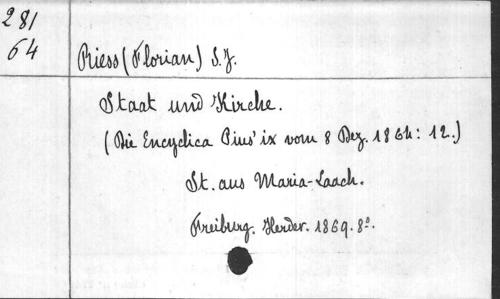 281
64
Riess (Florian) S.J.
Staat und Kirche.
(Die Encyclica Pius' ix vom 8 Dez. 1864: 12.)
St. aus Maria-Laach.
Freiburg. Herder. 1869. 8º.